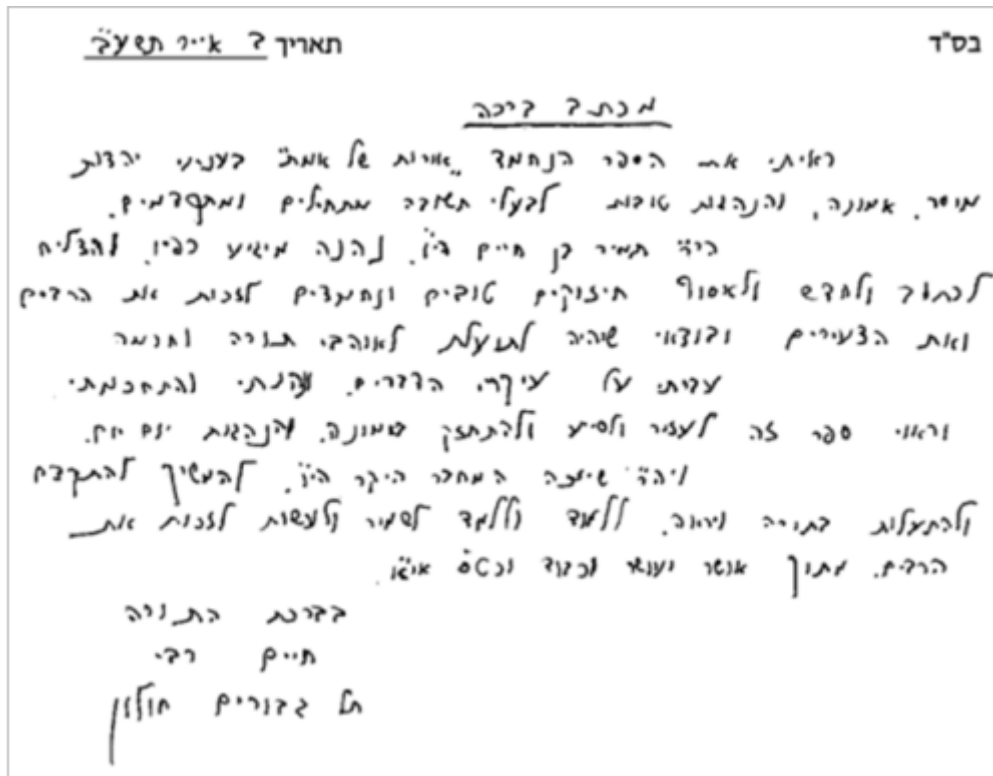 בס"ד תאריך ב אייר תשע"ב
מכתב ברכה
ראיתי את הספר הנחמד „אורות של אמת" בעניני יהדות
מוסר, אמונה, והנהגות טובות לבעלי תשובה מתחילים ומתקדמים.
הר"ר תמיר בן חיים הי"ו. נהנה מיגיע כפיו. והצליח
לכתוב ולחדש ולאסוף חיזוקים טובים ונחמדים לזכות את הרבים
ואת הצעירים ובודאי שיהיה לתועלת לאוהבי תורה וחכמה
עברתי על עיקרי הדברים. ונהנתי והתחכמתי.
וראוי ספר זה לעזור ולסיע ולהתחזק באמונה. והנהגות יום יום.
ויה"ר שיזכה המחבר היקר הי"ו. להמשיך להתקדם
ולהתעלות בתורה ויראה. ללמוד וללמד לשמור ולעשות לזכות את
הרבים. מתוך אושר ועושר וכבוד וכט"ס אי"ו.
בברכת התורה
חיים רבי
תל גבורים חולון